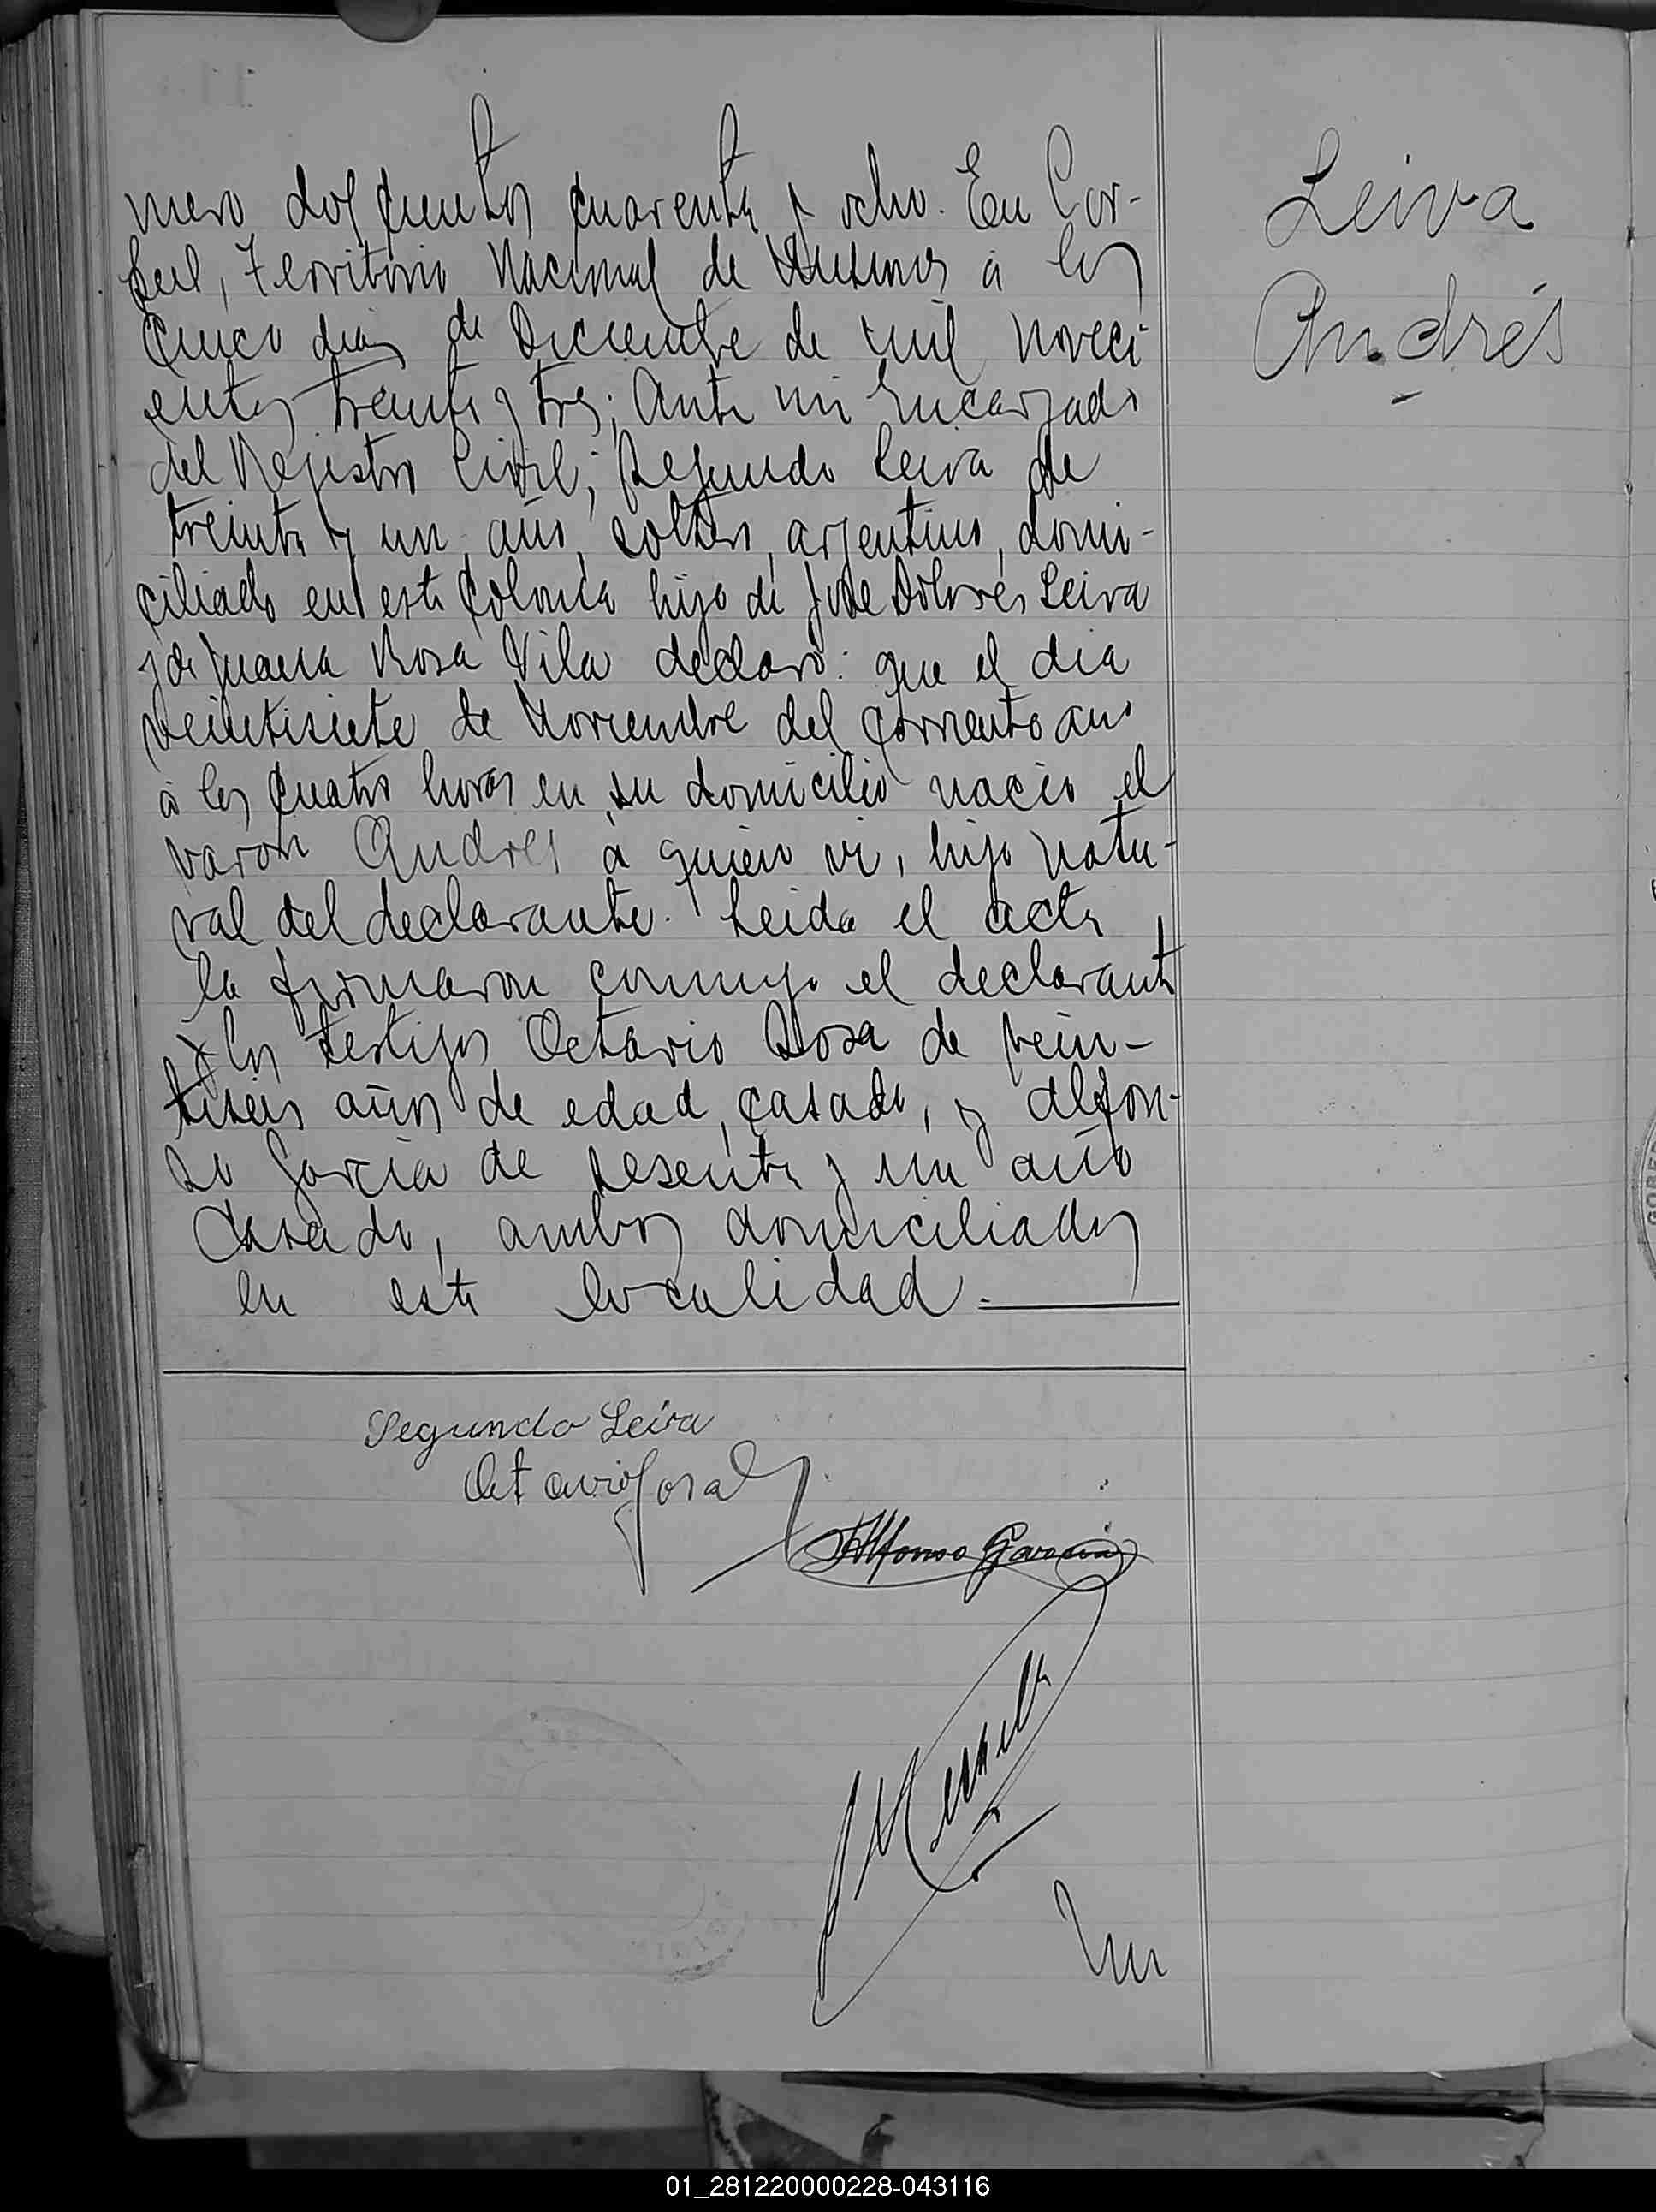 Leiva
Andrés
mero doscientos cuarenta y ocho. En Cor-
pus, Territorio Nacional de Misiones á los
cinco dias de Diciembre de mil noveci
entos treinta y tres; Ante mi Encargado
del Registro Civil; Segundo Leiva de
treinta y un año, soltero, argentino, domi-
ciliado en esta Colonia hijo de José Dolores Leiva
y de Juana Rosa Vila declaró: que el dia
veintisiete de Noviembre del corriente año
á las cuatro horas en su domicilio nació el
varon Andres á quien vi, hijo natu-
ral del declarante. Leida el acta
la firmaron conmigo el declarante
y los testigos Octavio Sosa de vein-
tiseis años de edad, casado, y Alfon-
so Garcia de sesenta y un año
Casado, ambos domiciliados
en esta localidad.
Segundo Leiva
Octavio Sosa
Alfonso Garcia
01_281220000228-043116